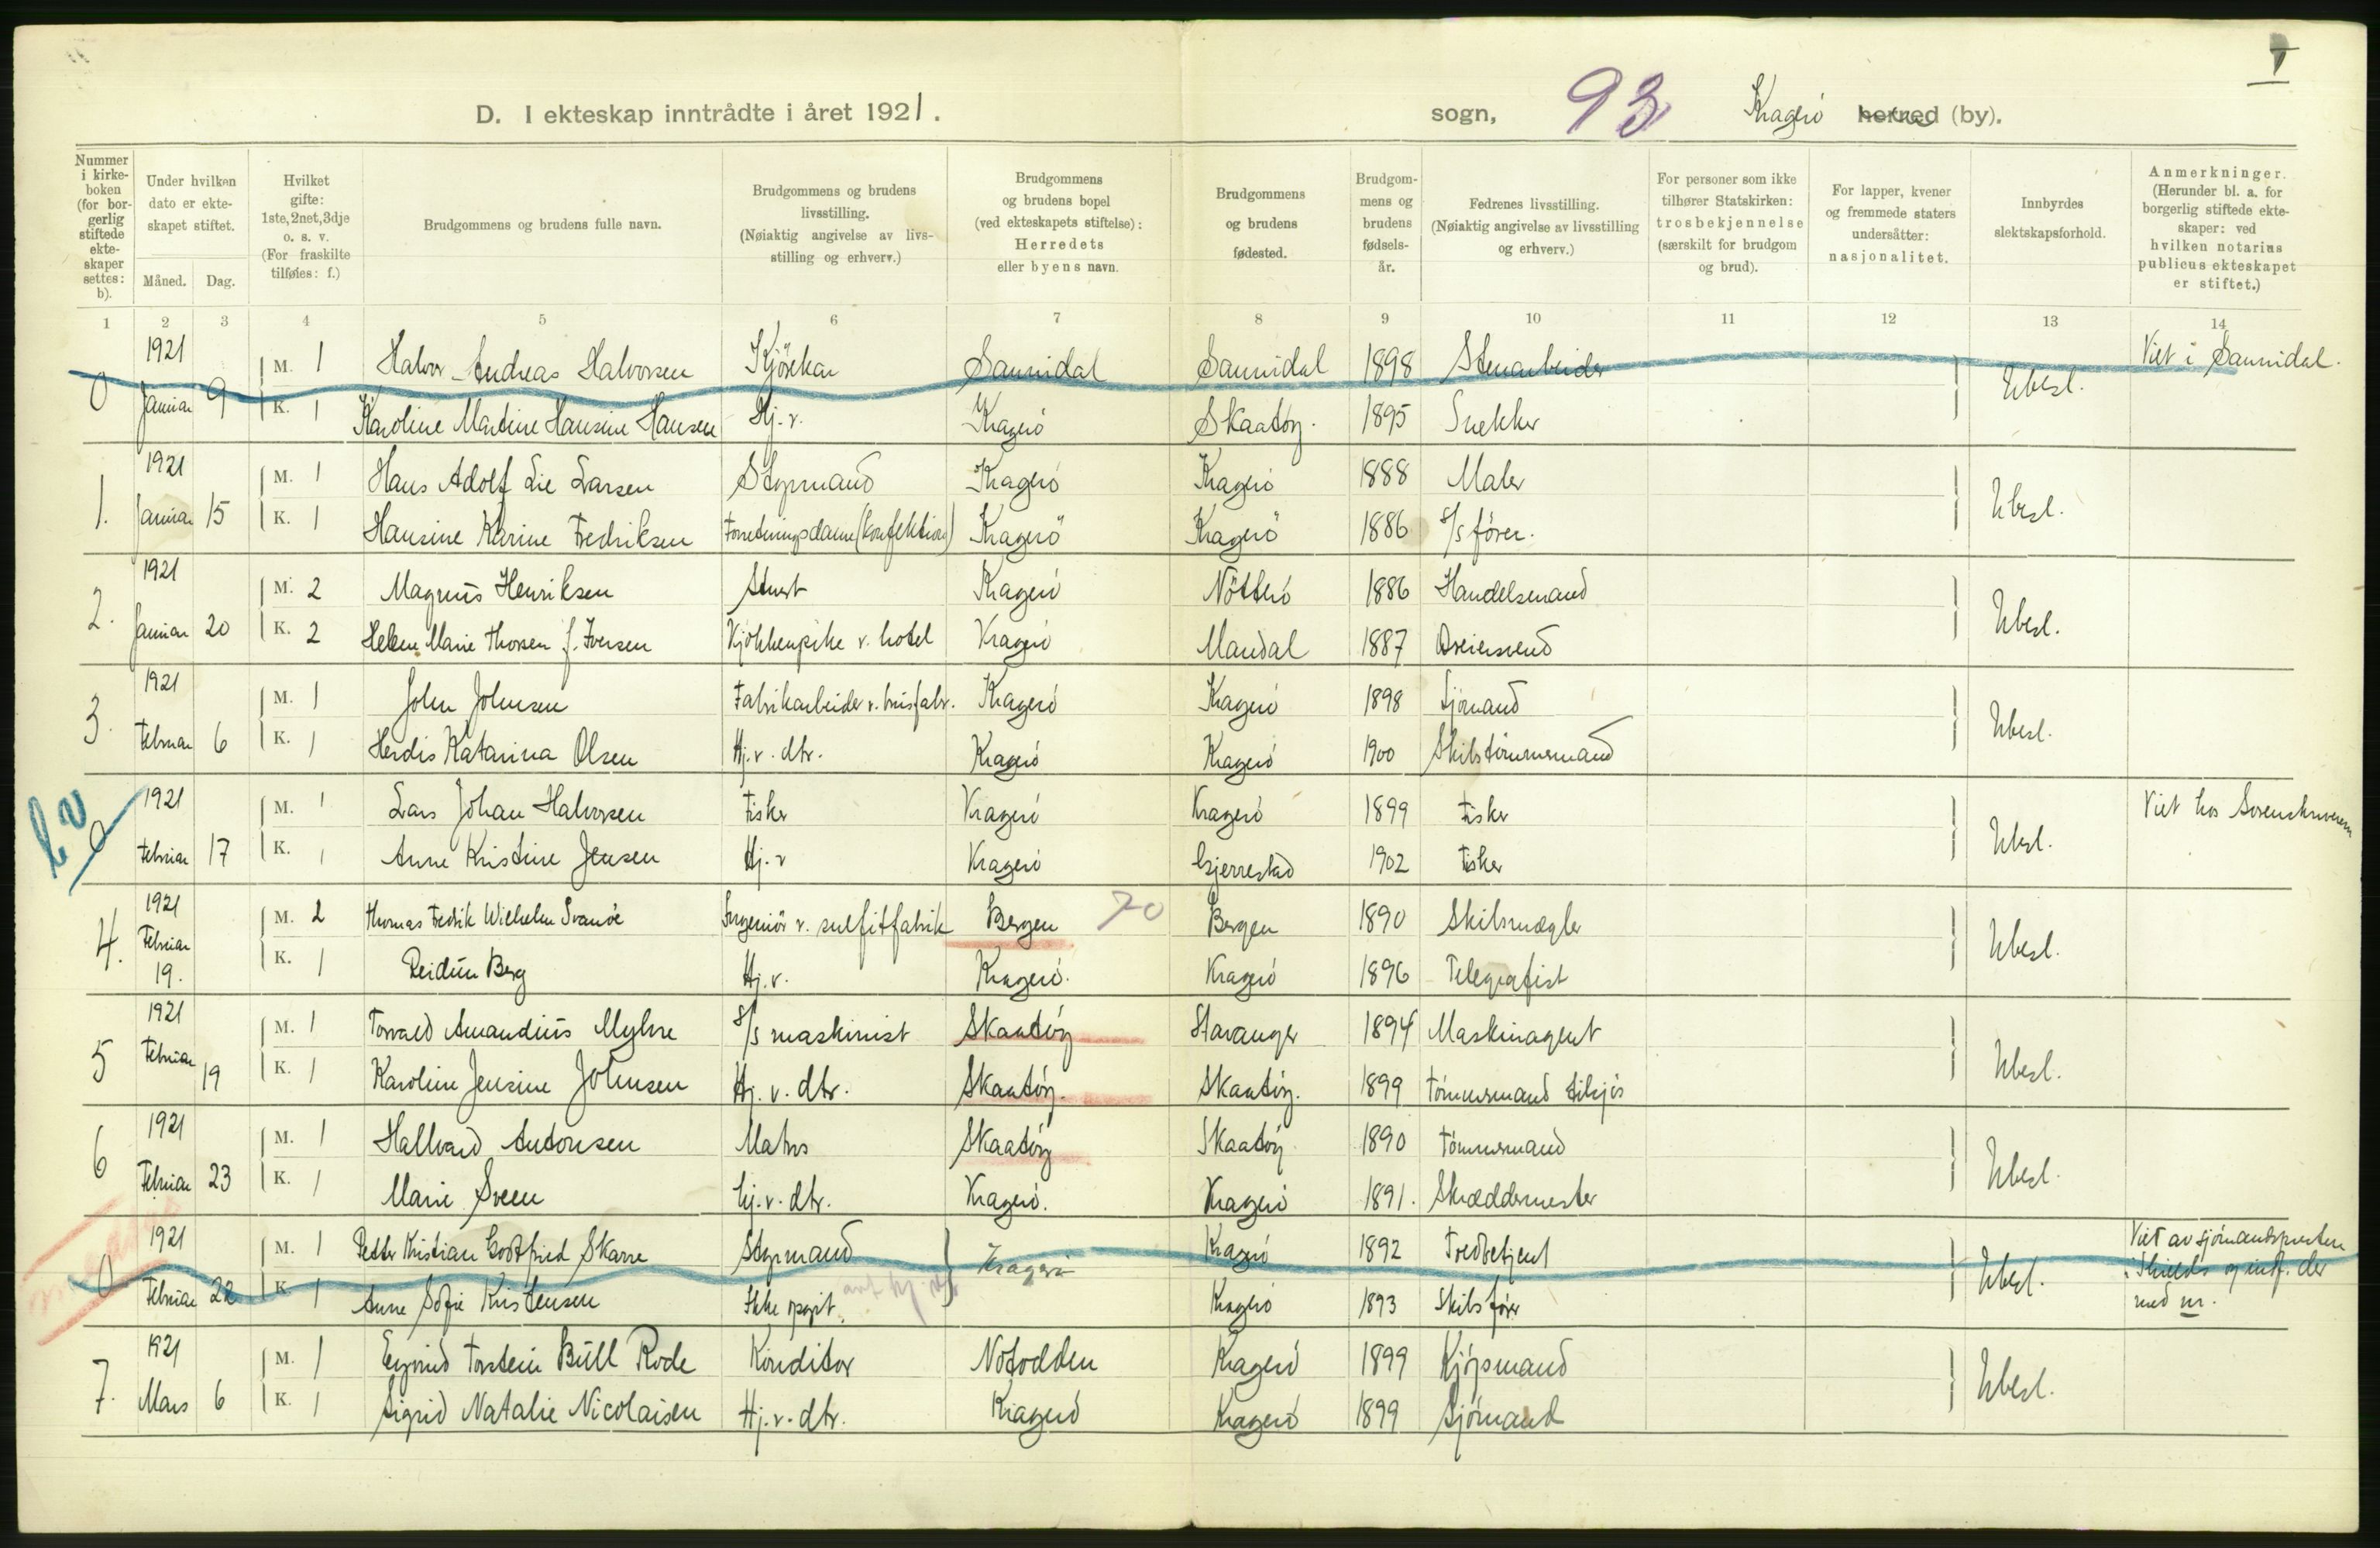 D. I ekteskap inntrådte i året 1921.
sogn, 93 Kragerö herred (by).
Nummer i kirke-boken (for bor-gerlig stiftede ekte-skaper settes: b).
Under hvilken dato er ekte-skapet stiftet.
Måned. Dag.
Hvilket gifte: 1ste, 2net, 3dje o. s. v. (For fraskilte tilføies: f.)
Brudgommens og brudens fulle navn.
Brudgommens og brudens livsstilling. (Nøiaktig angivelse av livs-stilling og erhverv.)
Brudgommens og brudens bopel (ved ekteskapets stiftelse): Herredets eller byens navn.
Brudgommens og brudens fødested.
Brudgom-mens og brudens fødsels-år.
Fedrenes livsstilling. (Nøiaktig angivelse av livsstilling og erhverv.)
For personer som ikke tilhører Statskirken: trosbekjennelse (særskilt for brudgom og brud).
For lapper, kvener og fremmede staters undersåtter: nasjonalitet.
Innbyrdes slektskapsforhold.
Anmerkninger. (Herunder bl. a. for borgerlig stiftede ekte-skaper: ved hvilken notarius publicus ekteskapet er stiftet.)
1 2 3 4 5 6 7 8 9 10 11 12 13 14
0 1921 Januar 9
M. 1 Halvor Andreas Halvorsen Kjörekar Sannidal Sannidal 1898 Stenarbeider Ubesl. Viet i Sannidal.
K. 1 Karoline Martine Hansine Hansen Hj. v. Kragerö Skaatöy. 1895 Snekker
1. 1921 Januar 15
M. 1 Hans Adolf Lie Larsen Styrmand Kragerö Kragerö 1888 Maler Ubesl.
K. 1 Hansine Karine Fredriksen Forretningsdame (konfektion) Kragerö Kragerö 1886 S/s förer.
2. 1921 Januar 20
M. 2 Magnus Henriksen Stuert Kragerö Nötterö 1886 Handelsmand Ubesl.
K. 2 Helene Marie Thorsen f. Iversen Kjökkenpike v. hotel Kragerö Mandal 1887 Dreiersvend
3. 1921 Februar 6
M. 1 John Johnsen Fabrikarbeider v. Kragerö Kragerö 1898 Sjömand Ubesl.
K. 1 Herdis Katarina Olsen Hj. v. dtr. Kragerö Kragerö 1900 Skibstömmermand
0 1921 Februar 17
M. 1 Lars Johan Halvorsen Fisker Kragerö Kragerö 1899 Fisker Ubesl. Viet hos Sorenskriveren
K. 1 Anne Kristine Jensen Hj. v Kragerö Gjerrestad 1902 Fisker
4. 1921 Februar 19.
M. 2 Thomas Fredrik Wilhelm Svanöe Ingeniör v. sulfitfabrik Bergen 70 Bergen 1890 Skibsmægler Ubesl.
K. 1 Reidun Berg Hj. v. Kragerö. Kragerö 1896 Telegrafist
5 1921 Februar 19
M. 1 Torvald Amandius Myhre S/s maskinist Skaatöy Stavanger 1894 Maskinagent Ubesl.
K. 1 Karoline Jensine Johnsen Hj. v. dtr. Skaatöy. Skaatöy. 1899 Tömmermand tilsjös
6 1921 Februar 23
M. 1 Hallvard Antonsen Matros Skaatöy Skaatöy 1890 Tömmermand Ubesl.
K. 1 Marie Sveen hj. v. dtr. Kragerö. Kragerö 1891. Skræddermester
0 1921 Februar 22
M. 1 Petter Kristian Godtfried Skarre Styrmand Kragerö Kragerö 1892 Tredbetjent Ubesl. Viet av sjömandspresten
i Shields og innf. der
med nr.
K. 1 Anne Sofie Kristensen Ikke opgit. Kragerö 1893 Skibsförer
7. 1921 Mars 6
M. 1 Eyvind Torstein Bull Rode Konditor Notodden Kragerö 1899 Kjöpmand Ubesl.
K. 1 Sigrid Natalie Nicolaisen Hj. v. dtr. Kragerö Kragerö 1899 Sjömand